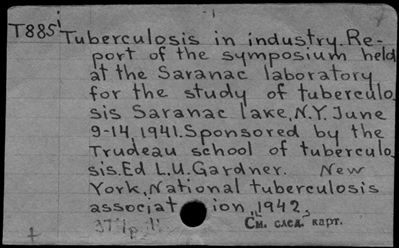 T885i Tuberculosis in industry. Re-
port of the symposium held
at the Saranac laboratory
for the study of tuberculo
sis Saranac lake, N.Y. June
9-14, 1941. Sponsored by the
Trudeau school of tuberculo
sis. Ed L.U. Gardner. New
York, National tuberculosis
associat ion, 1942,
См. след. карт.